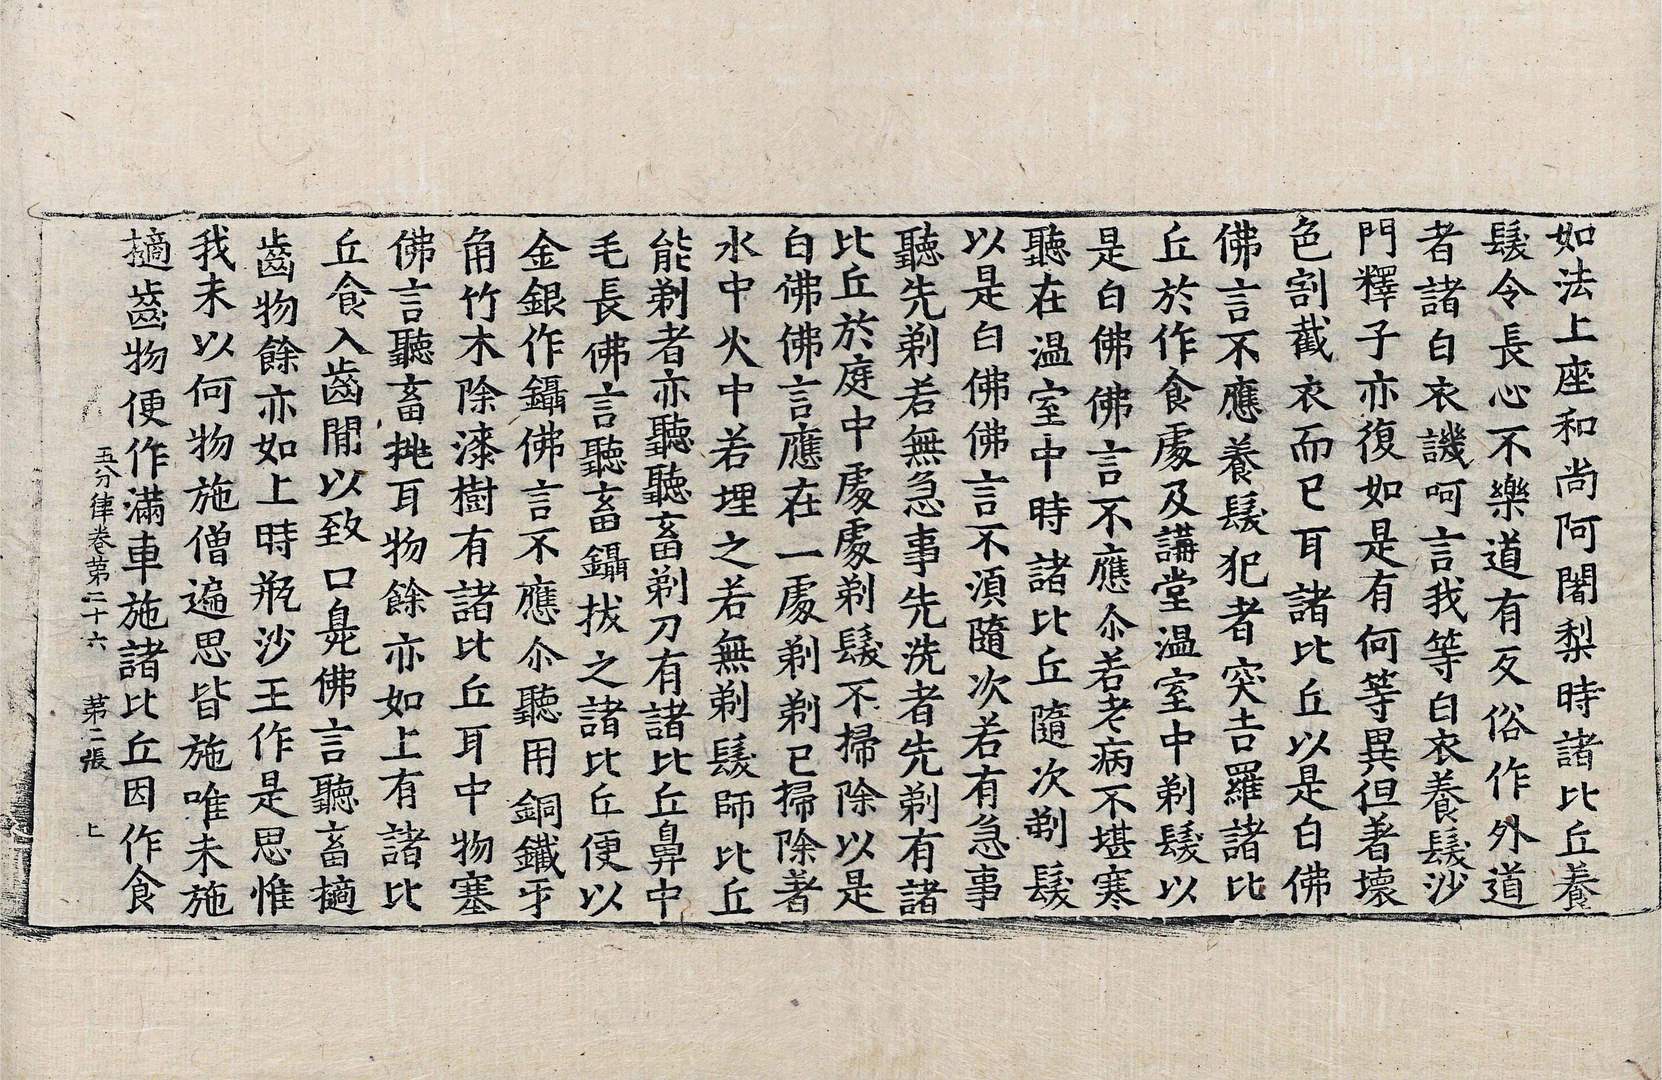 如法上座和尚阿闍梨時諸比丘養
髮令長心不樂道有反俗作外道
者諸白衣譏呵言我等白衣養髮沙
門釋子亦復如是有何等異但著壞
色割截衣而已耳諸比丘以是白佛
佛言不應養髮犯者突吉羅諸比
丘於作食處及講堂温室中剃髮以
是白佛佛言不應尒若老病不堪寒
聽在温室中時諸比丘隨次剃髮
以是白佛佛言不湏隨次若有急事
聽先剃若無急事先洗者先剃有諸
比丘於庭中處處剃髮不掃除以是
白佛佛言應在一處剃剃已掃除著
水中火中若埋之若無剃髮師比丘
能剃者亦聽聽畜剃刀有諸比丘鼻中
毛長佛言聽畜鑷拔之諸比丘便以
金銀作鑷佛言不應尒聽用銅鐵牙
角竹木除漆樹有諸比丘耳中物塞
佛言聽畜挑耳物餘亦如上有諸比
丘食入齒閒以致口臭佛言聽畜擿
齒物餘亦如上時瓶沙王作是思惟
我未以何物施僧遍思皆施唯未施
擿齒物便作滿車施諸比丘因作食
五分律卷第二十六 第二張 上